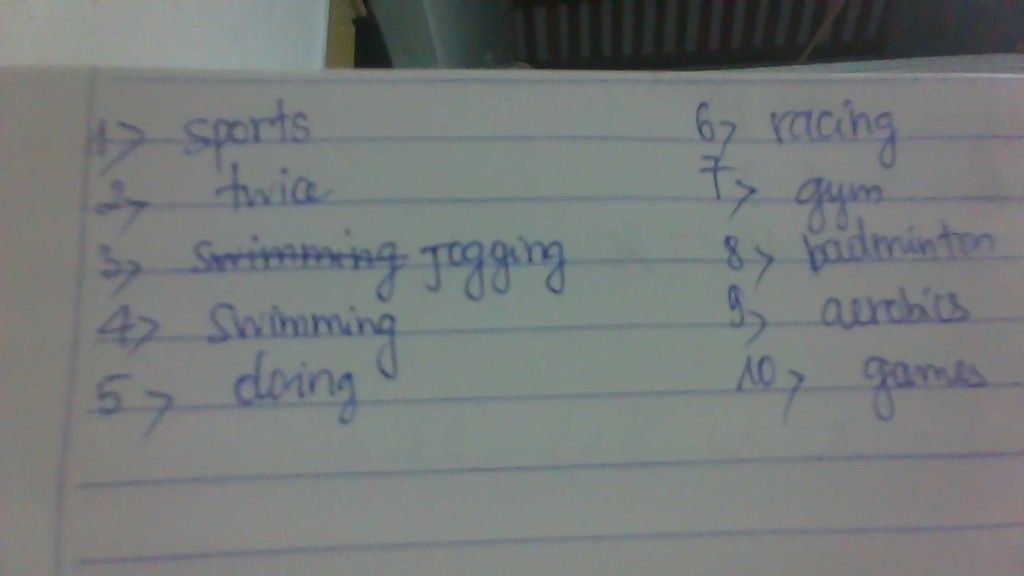 1> sports
2> twice
3> swimming Jogging
4> Swimming
5> doing
6> racing
7> gym
8> badminton
9> aerobics
10> games